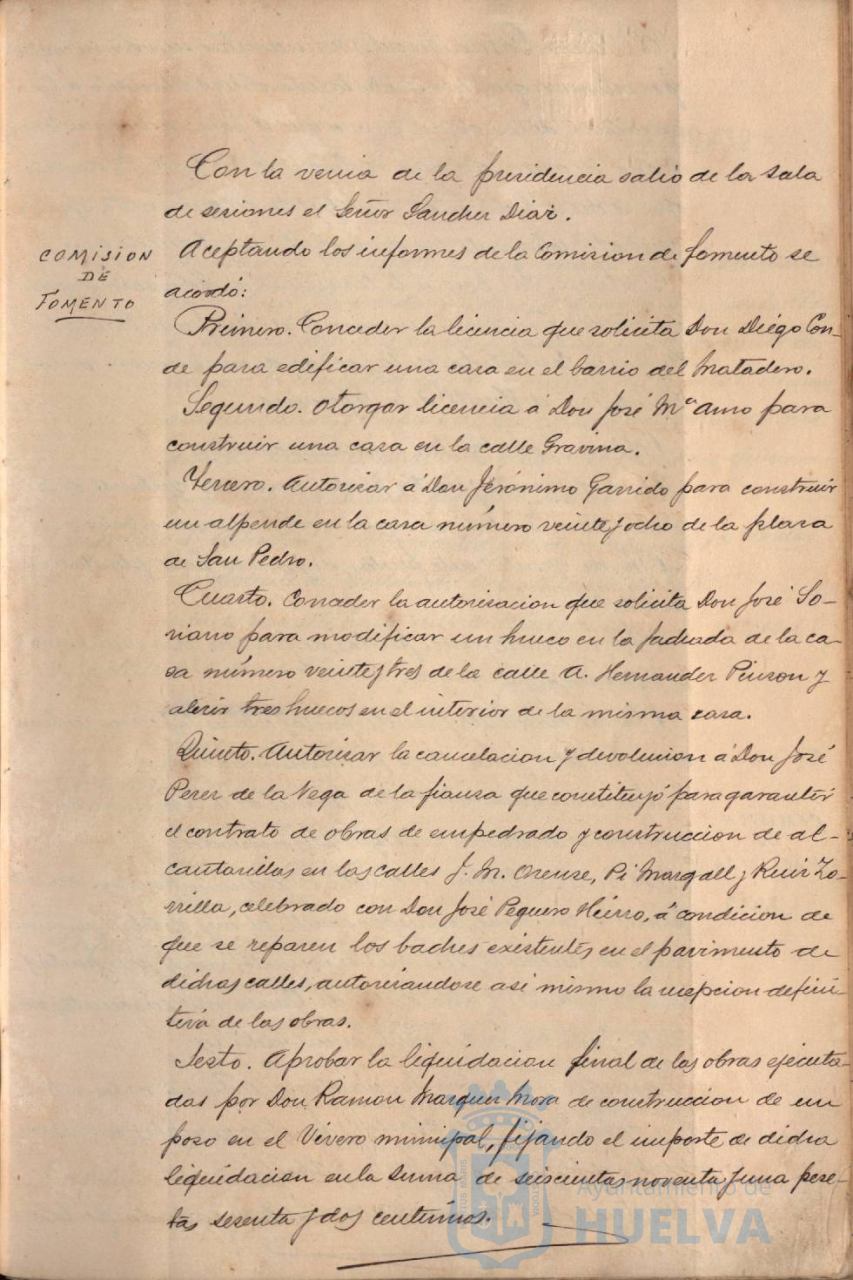 Con la venia de la presidencia salió de la sala
de sesiones el Señor Sanchez Diaz.
COMISION
DE
FOMENTO
Aceptando los informes de la Comision de fomento se
acordó:
Primero. Conceder la licencia que solicita Don Diégo Con-
de para edificar una casa en el barrio del Matadero.
Segundo. Otorgar licencia á Don José Mª Amo para
construir una casa en la calle Gravina.
Tercero. Autorizar á Don Jerónimo Garrido para construir
un alpende en la casa número veinte y ocho de la plaza
de San Pedro.
Cuarto. Conceder la autorizacion que solicita Don José So-
riano para modificar un hueco en la fachada de la ca-
sa número veinte y tres de la calle A. Hernandez Pinzon y
abrir tres huecos en el interior de la misma casa.
Quinto. Autorizar la cancelacion y devolucion á Don José
Perez de la Vega de la fianza que constituyó para garantir
el contrato de obras de empedrado y construccion de al-
cantarillas en las calles J. M. Orense, Pi Margall y Ruiz Zo-
rrilla, celebrado con Don José Peguero Hierro, á condicion de
que se reparen los baches existentes en el pavimento de
dichas calles, autorizandose asi mismo la recepcion defini-
tiva de las obras.
Sexto. Aprobar la liquidacion final de las obras ejecuta-
das por Don Ramon Marquez Mora de construccion de un
pozo en el Vivero municipal, fijando el importe de dicha
liquidacion en la suma de seiscientas noventa y una pese-
tas sesenta y dos centimos.
Ayuntamiento de
HUELVA